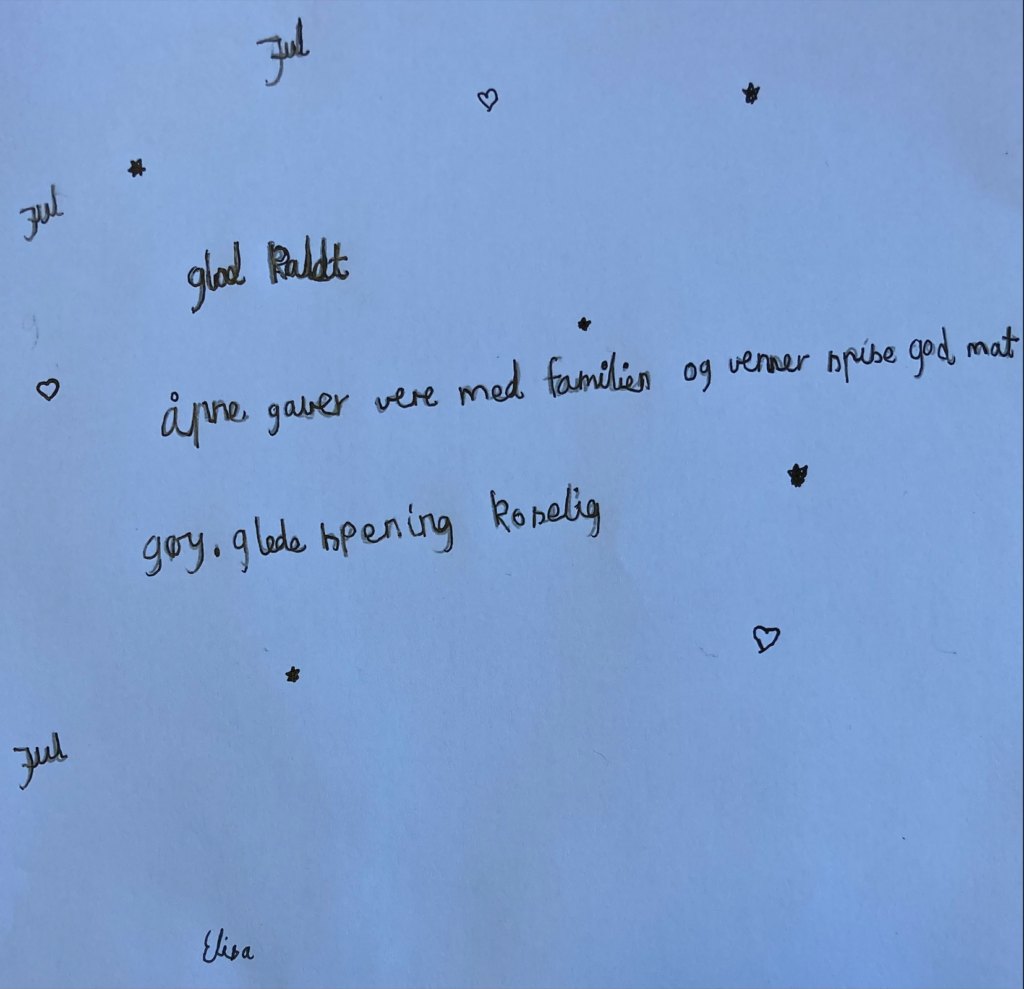 Jul
Jul
glad kaldt
åpne gaver vere med familien og venner spise god mat
gøy. glede spening koselig
Jul
Elisa